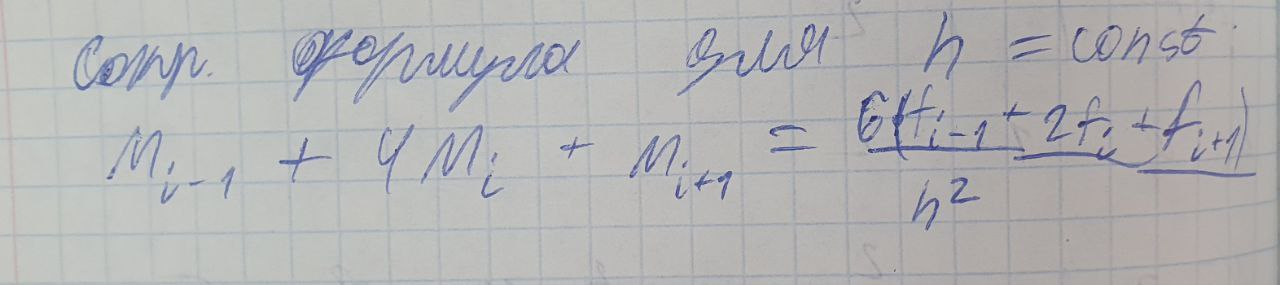 Сокр. формула для h = const
M_{i-1} + 4M_i + M_{i+1} = \frac{6(f_{i-1} + 2f_i + f_{i+1})}{h^2}